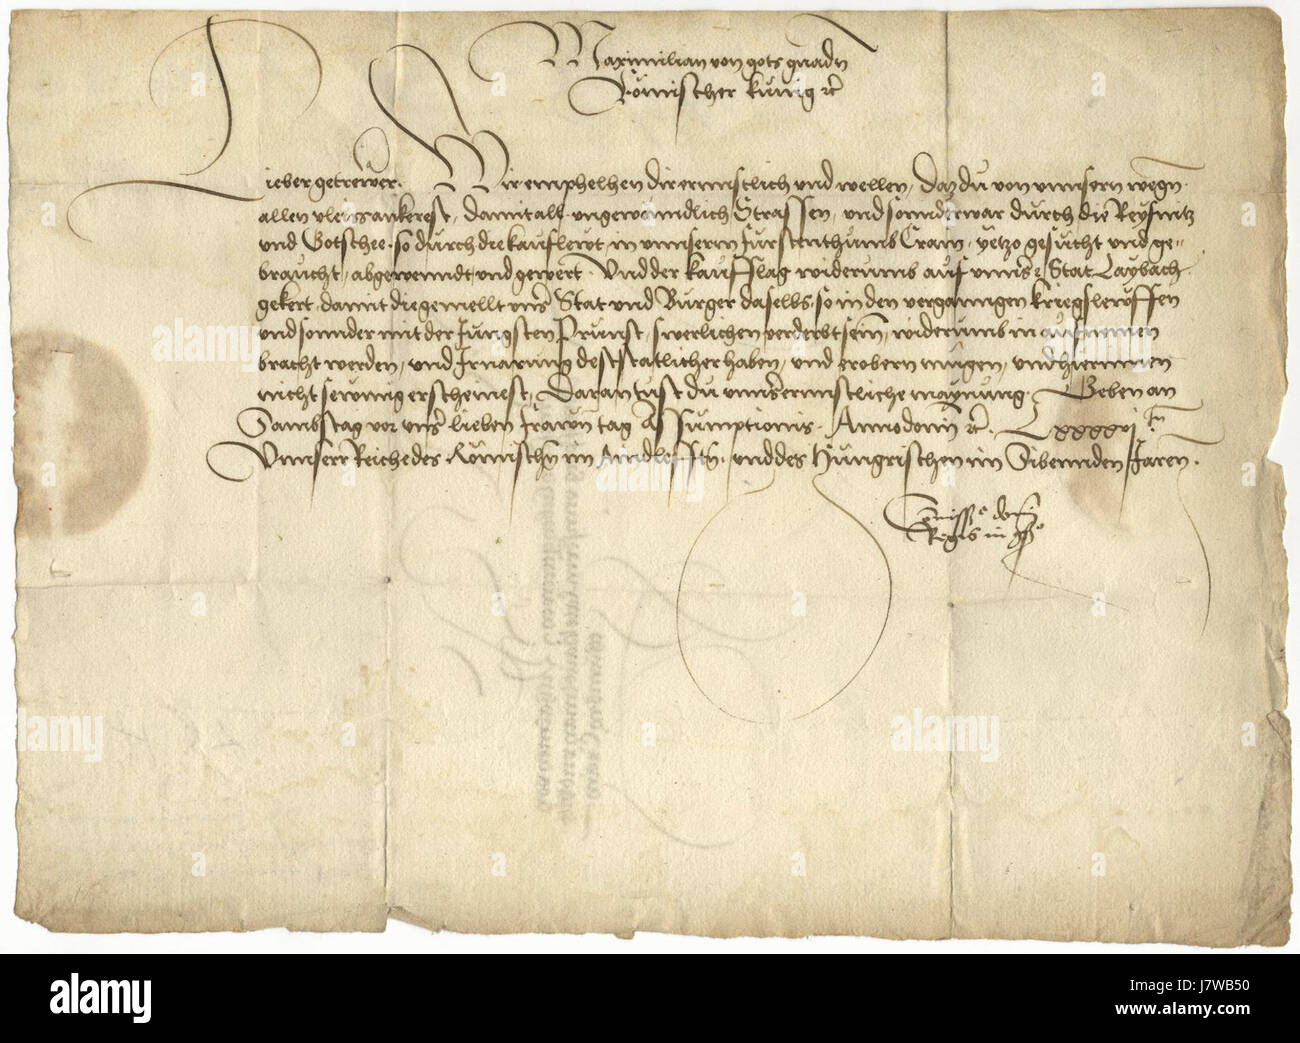 Maximilian von gots gnadn
Römischer kunig etc
Lieber getrewer. Wir emphelhen dir ernnstlich und wellen, daz du von unnsern wegn
allen vleis ankerest, damit all ungewonndlich Strassen, und sonnder war durch die Reyfnitz
und Gotschee, so durch die kaufleẃt in unnserm Furstenthumb Crain, yetzo gesucht und ge-
braucht, abgewenndt und gewert. Und der kaufslag widerumb auf unnser Stat Laybach
gekert, damit die gemellt unser Stat und Burger daselbs, so in den vergangen kriegsleẃffen
und sonnder mit der Jungsten Prunst, swerlichen verderbt sein, widerumb in aufnemen
bracht werden, und Irnarung dest stattlicher haben, und erobern mugen, und hierinnen
nicht sewmig erscheinest, Daran tust du unnser ernnstliche maynung. Geben an
Sambstag vor unser lieben frawn tag Assumptionis. Anno domini etc. Lxxxxvj tn
Unnserr Reiche des Römischn im Aindleften. und des Hungrischen im Sibennden Jaren.
Comissio domini
Regis in
alamy
Image ID: J7WB50
www.alamy.com